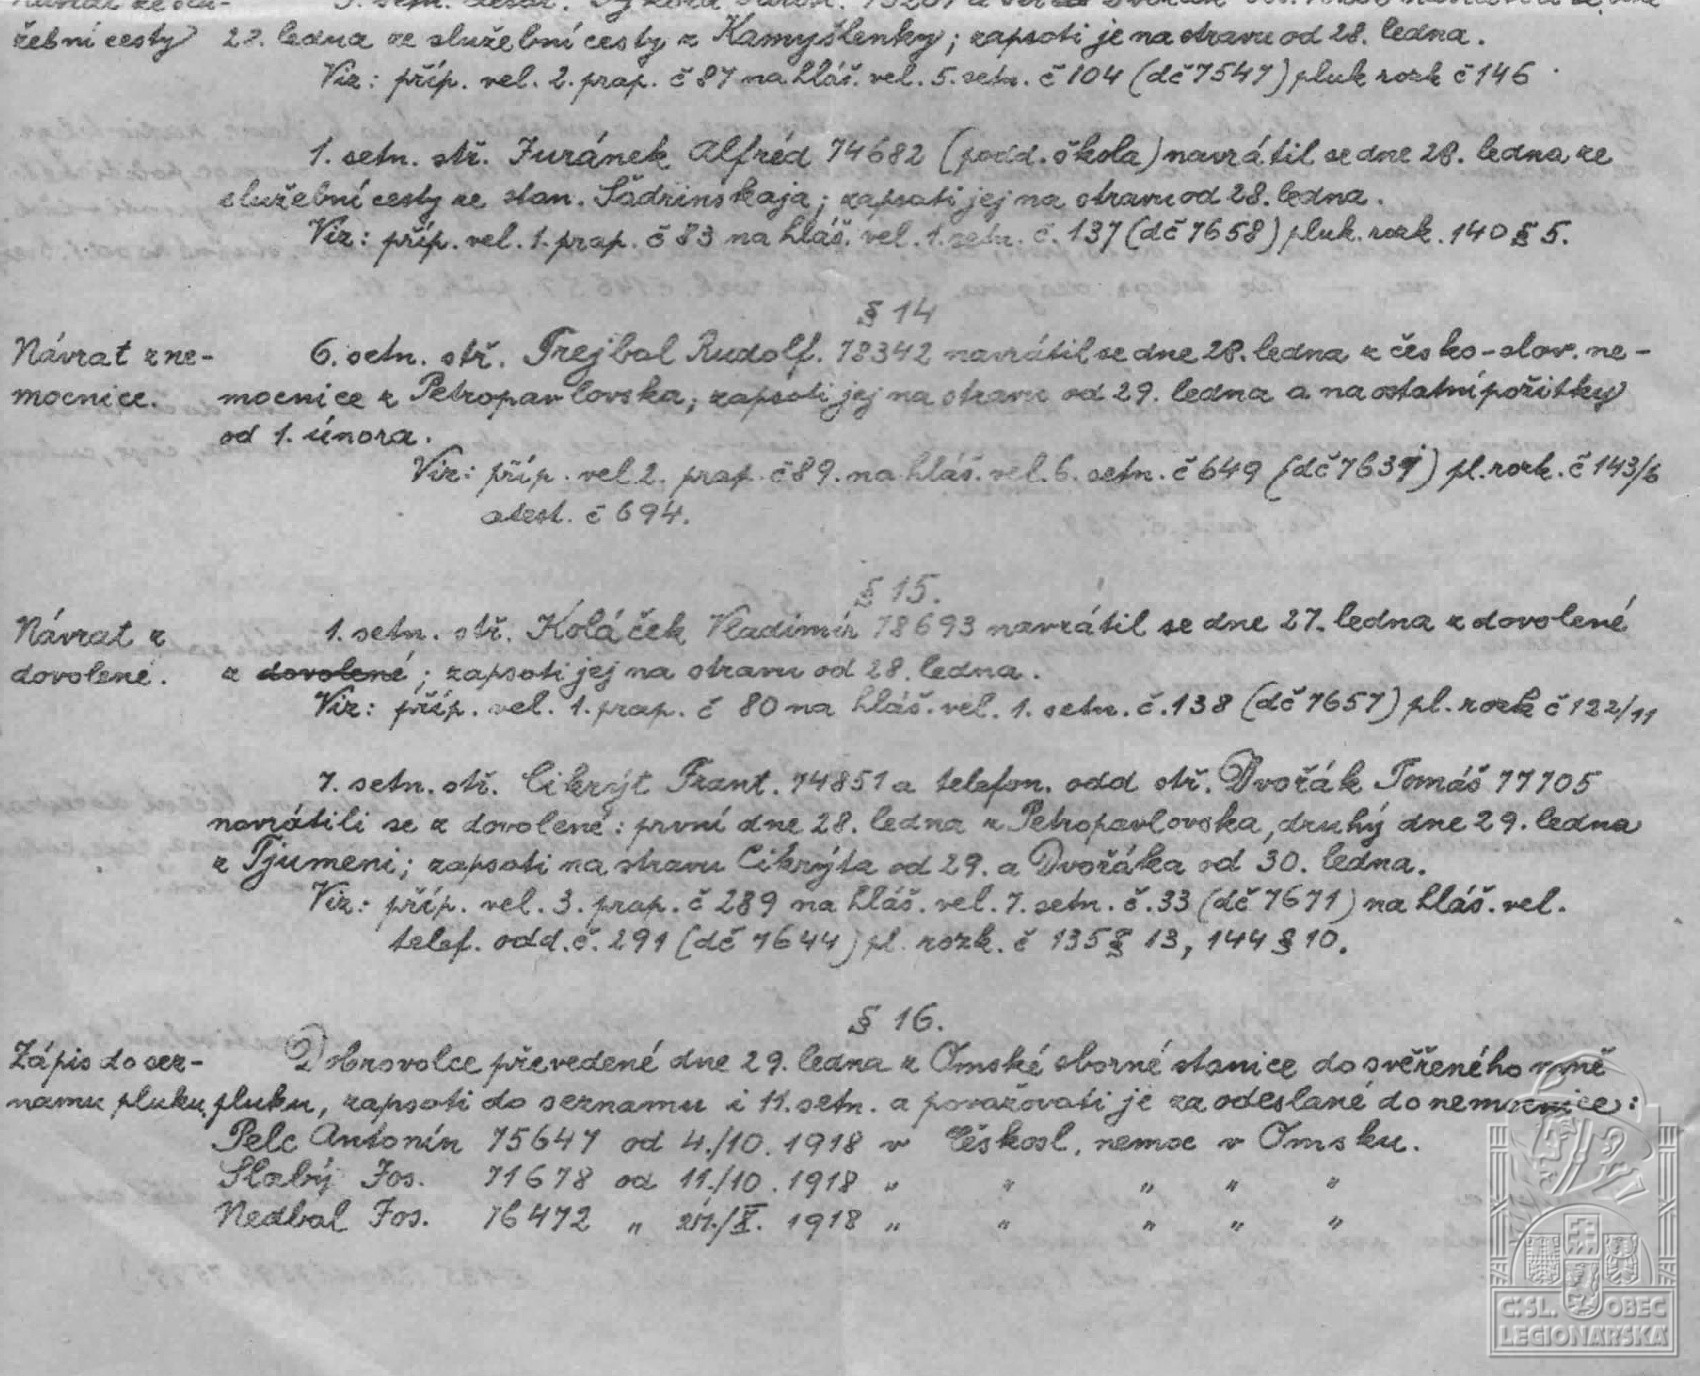 žební cesty 22. ledna ze služební cesty z Kamyšlenky; zapsati je na stravu od 28. ledna.
Viz: příp. vel. 2. prap. č 87 na hláš. vel. 5. setn. č 104 (dč 7547) pluk rozk č 146
1. setn. stř. Juránek Alfréd 74682 (podd. škola) navrátil se dne 28. ledna ze
služební cesty ze stan. Šadrinskaja; zapsati jej na stravu od 28. ledna.
Viz: příp. vel. 1. prap. č 83 na hláš. vel. 1. setn. č. 137 (dč 7658) pluk. rozk. 140 § 5.
§ 14
Návrat z ne- 6. setn. stř. Trejbal Rudolf. 78342 navrátil se dne 28. ledna z česko-slov. ne-
mocnice. mocnice z Petropavlovska; zapsati jej na stravu od 29. ledna a na ostatní požitky
od 1. února.
Viz: příp. vel 2. prap. č 89. na hláš. vel. 6. setn. č 649 (dč 7639) pl. rozk. č 143/6
atest. č 694.
§ 15.
Návrat z 1. setn. stř. Koláček Vladimír 78693 navrátil se dne 27. ledna z dovolené
dovolené. z dovolené; zapsati jej na stravu od 28. ledna.
Viz: příp. vel. 1. prap. č 80 na hláš. vel. 1. setn. č. 138 (dč 7657) pl. rozk č 122/11
7. setn. stř. Cikrýt Frant. 74851 a telefon. odd stř. Dvořák Tomáš 77705
navrátili se z dovolené: první dne 28. ledna z Petropavlovska, druhý dne 29. ledna
z Tjumeni; zapsati na stravu Cikrýta od 29. a Dvořáka od 30. ledna.
Viz: příp. vel. 3. prap. č 289 na hláš. vel. 7. setn. č. 33 (dč 7671) na hláš. vel.
telef. odd. č. 291 (dč 7644) pl. rozk. č 135 § 13, 144 § 10.
§ 16.
Zápis do sez- Dobrovolce převedené dne 29. ledna z Omské sborné stanice do svěřeného mně
namu pluku. pluku, zapsati do seznamu i 11. setn. a považovati je za odeslané do nemocnice:
Pelc Antonín 75647 od 4./10. 1918 v Česko­sl. nemoc v Omsku.
Slabý Jos. 71678 od 11./10. 1918 " " " " "
Nedbal Jos. 76472 " 27./X. 1918 " " " " "
Č.SL. OBEC
LEGIONÁŘSKÁ